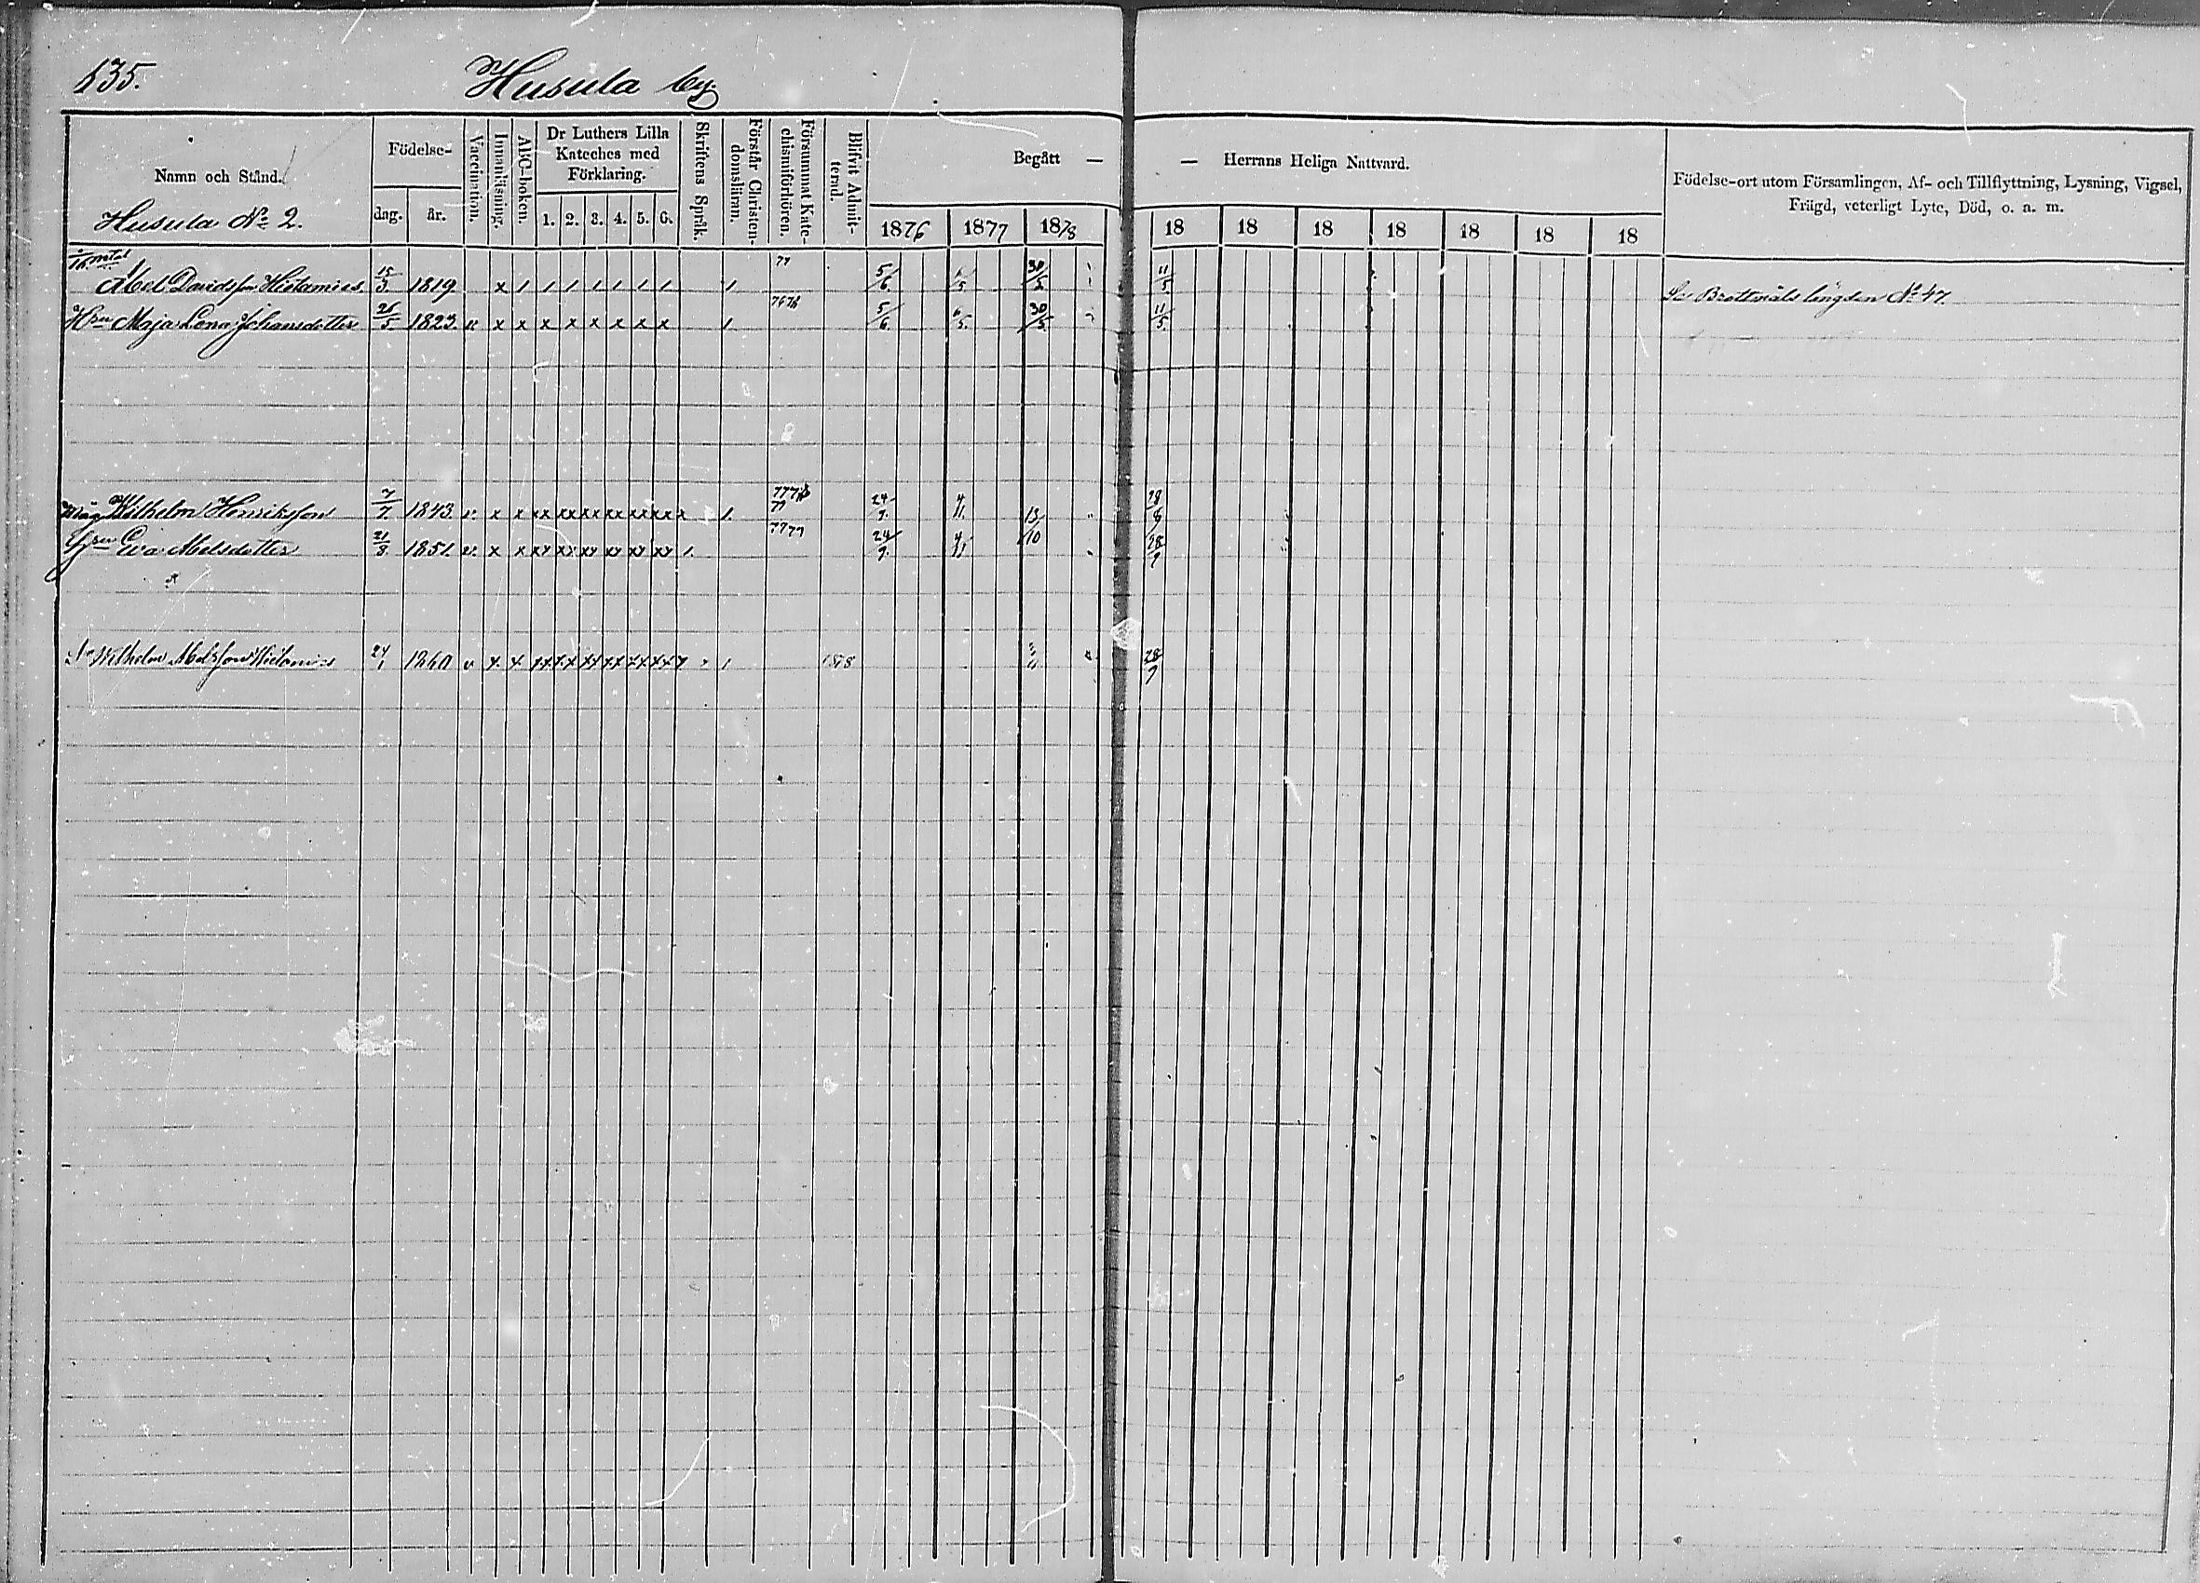 135.
Husula by.
Namn och Stånd.
Födelse-
dag.
år.
Vaccination.
Innanläsning.
AbC-boken.
Dr Luthers Lilla
Kateches med
Förklaring.
1. 2. 3. 4. 5. 6.
Skriftens Språk.
Förstår Christen-
domsläran.
Försummat Kate-
chismiförhören.
Blifvit Admit-
terad.
Begått —
— Herrans Heliga Nattvard.
1876 1877 1878
18 18 18 18 18 18 18
Födelse-ort utom Församlingen, Af- och Tillflyttning, Lysning, Vigsel,
Frägd, veterligt Lyte, Död, o. a. m.
Husula No 2.
mtal
Abel Davidsson Hietamies 15/3 1819 x / / / / / / / / 77 5/6 6/5 30/5 11/5 Se Brottmåls längden No 47.
Hru Maja Lena Johansdotter 26/5 1823 v. x x x x x x x x 1. 5/6 6/5 30/5 11/5
Måg Wilhelm Henriksson 7/7 1843 v. x x xx xx xx xx xx xx 1. 24/9. 4/11. 13/10 28/9
Hru Eva Abelsdotter 21/8 1851. v. x x xx xx xx xx xx xx 1. 7779 24/9. 4/11 28/9
Sn Wilhelm Abelsson Hietamies 24/1 1860 v x x 1. 1878 28/9